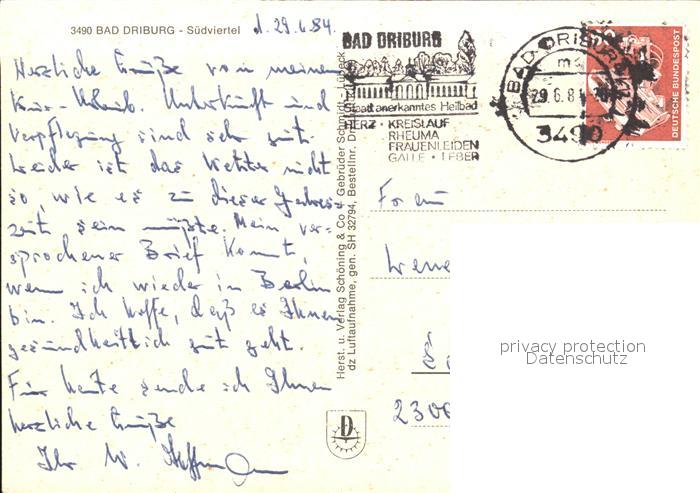 3490 BAD DRIBURG - Südviertel
d. 29.6.84.
Herzliche Grüße von meinem
Kur-Urlaub. Unterkunft und
Verpflegung sind sehr gut.
Leider ist das Wetter nicht
so, wie es zu dieser Jahres-
zeit sein müßte. Mein ver-
sprochener Brief kommt,
wenn ich wieder in Berlin
bin. Ich hoffe, daß es Ihnen
gesundheitlich gut geht.
Für heute sende ich Ihnen
herzliche Grüße
Ihr W.
Herst. u. Verlag Schöning & Co + Gebrüder Schmidt, Lübeck
dz Luftaufnahme, gen. SH 32794, Bestellnr.
BAD DRIBURG
Staatl anerkanntes Heilbad
HERZ · KREISLAUF
RHEUMA
FRAUENLEIDEN
GALLE · LEBER
BAD DRIBURG
29.6.84
3490
DEUTSCHE BUNDESPOST
Frau
230
D
privacy protection
Datenschutz